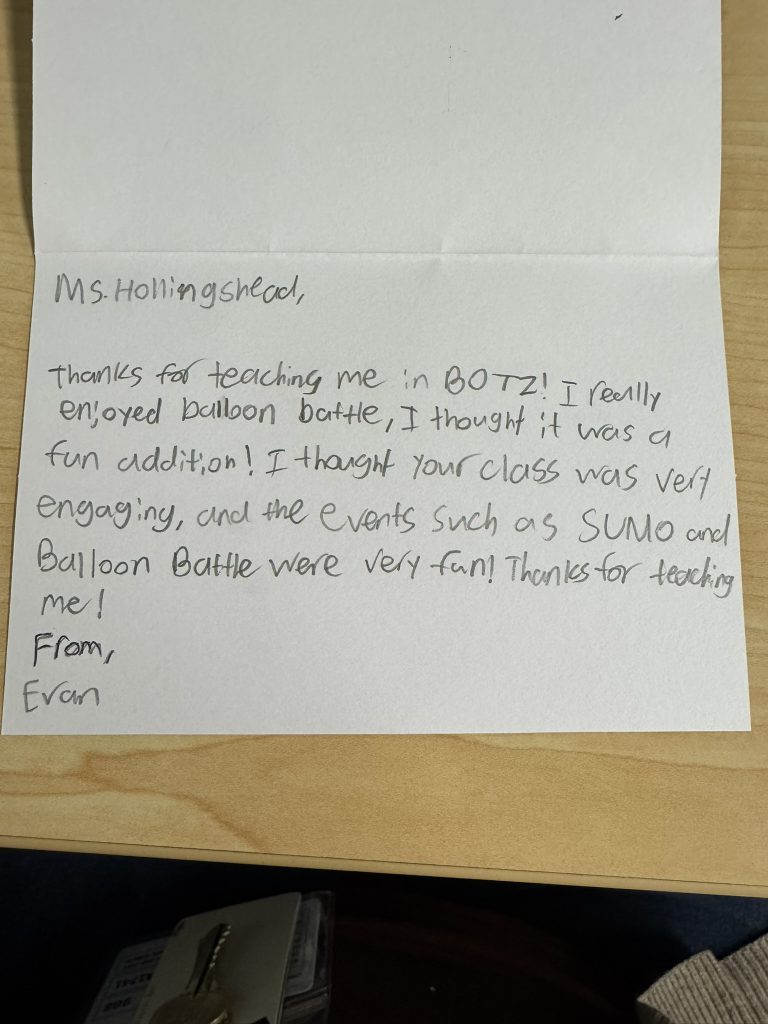 Ms. Hollingshead,
Thanks for teaching me in BOTZ! I really
enjoyed balloon battle, I thought it was a
fun addition! I thought your class was very
engaging, and the events such as SUMO and
Balloon Battle were very fun! Thanks for teaching
me!
From,
Evan